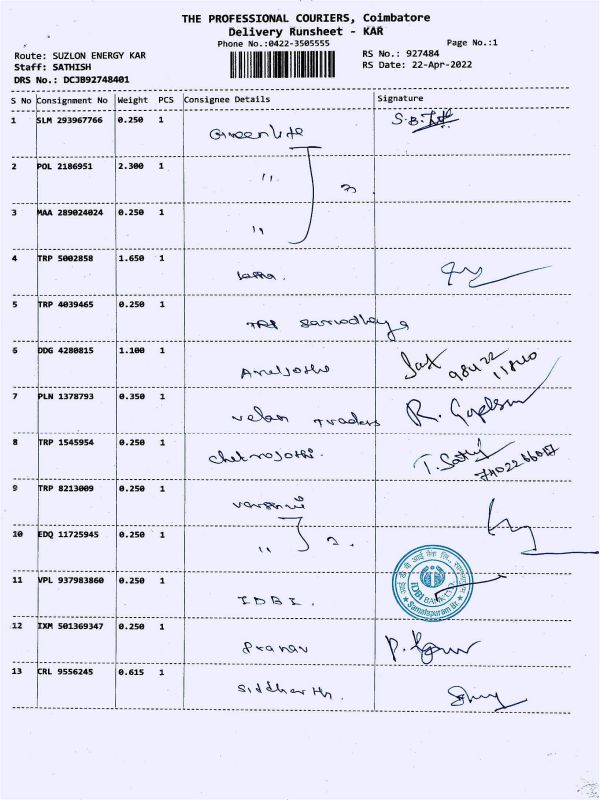 THE PROFESSIONAL COURIERS, Coimbatore
Delivery Runsheet - KAR
Phone No.:0422-3505555
Page No.:1
Route: SUZLON ENERGY KAR
RS No.: 927484
Staff: SATHISH
RS Date: 22-Apr-2022
DRS No.: DCJB92748401
S No Consignment No Weight PCS Consignee Details Signature
1 SLM 293967766 0.250 1 Greenlite S.B.
2 POL 2186951 2.300 1 " 3
3 MAA 289024024 0.250 1 "
4 TRP 5002858 1.650 1
5 TRP 4039465 0.250 1 Sarvodhaya
6 DDG 4280815 1.100 1 Aruljothi
7 PLN 1378793 0.350 1 Velan Traders R.
8 TRP 1545954 0.250 1 T. Sathy
9 TRP 8213009 0.250 1
10 EDQ 11725945 0.250 1 " 2.
11 VPL 937983860 0.250 1 IDBI. IDBI BANK LTD
12 IXM 501369347 0.250 1 Pranav P.
13 CRL 9556245 0.615 1 Siddharth.